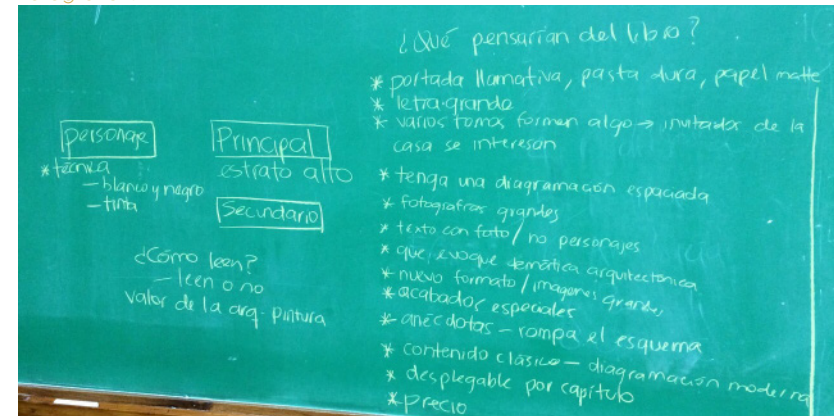 personaje
*técnica
— blanco y negro
— tinta
Principal
estrato alto
Secundario
¿Cómo leen?
— leen o no
valor de la arq. pintura
¿Qué pensarían del libro?
* portada llamativa, pasta dura, papel matte
* letra grande
* varios tomos formen algo → invitados de la
casa se interesan
* tenga una diagramación espaciada
* fotografías grandes
* texto con foto / no personajes
* que evoque temática arquitectónica
* nuevo formato / imagenes grandes
* acabados especiales
* anécdotas — rompa el esquema
* contenido clásico — diagramación moderna
* desplegable por capítulo
* precio